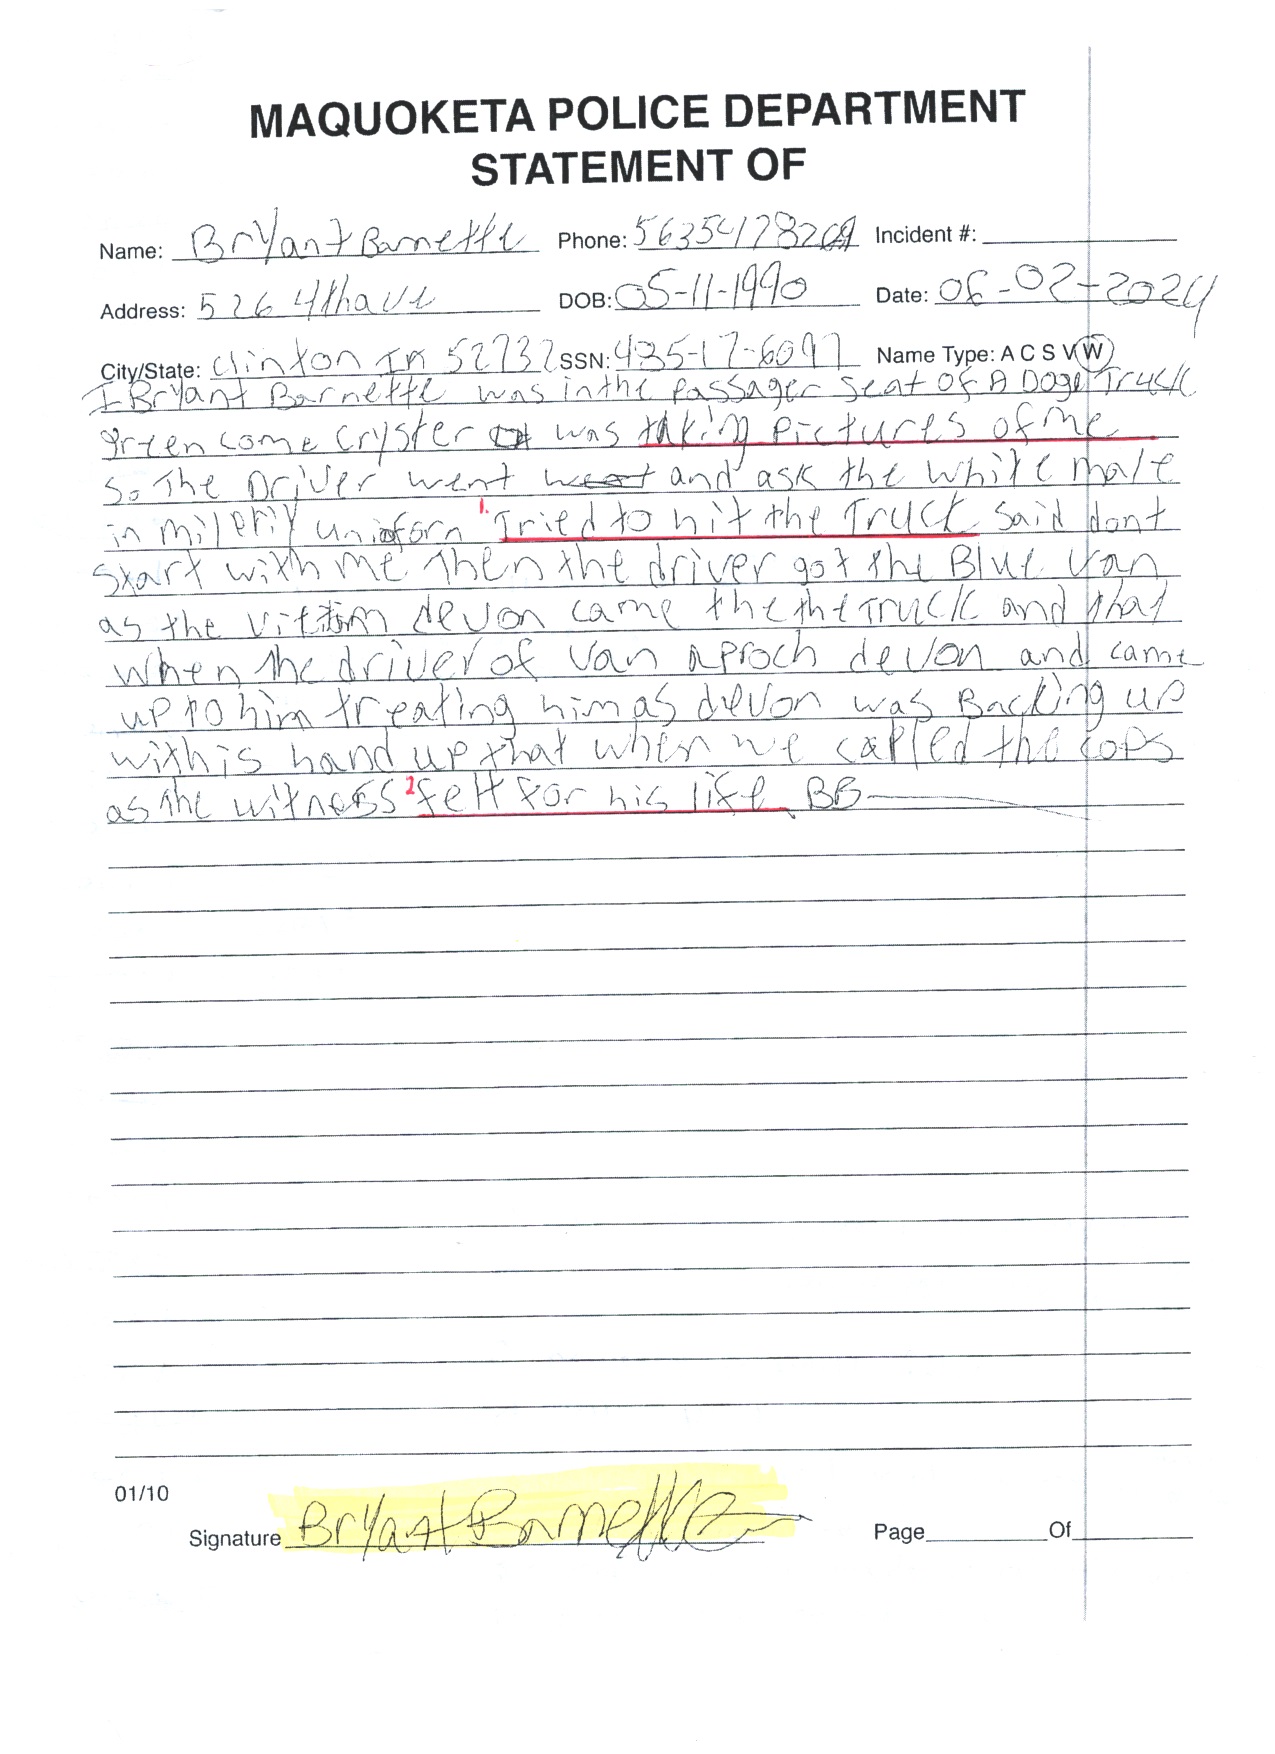 MAQUOKETA POLICE DEPARTMENT
STATEMENT OF
Name: Bryant Barnette Phone: Incident #:
Address: 526 4th ave DOB: 05-11-1990 Date: 06-02-2024
City/State: Clinton 52732 SSN: 435-17-6097 Name Type: A C S V W
I Bryant Barnette was in the passager seat of A Doge Truck
green come cryster was taking pictures of me
so The Driver went went and ask the white male
in uniform 1. Tried to hit the Truck said dont
start with me Then the driver got the Blue van
as the devon came the the Truck and that
when the driver of van aproch devon and came
up to him treating him as devon was Backing up
with is hand up that when we called the cops
as the witness 2 felt for his life BB
01/10
Signature Bryant Barnette Page Of